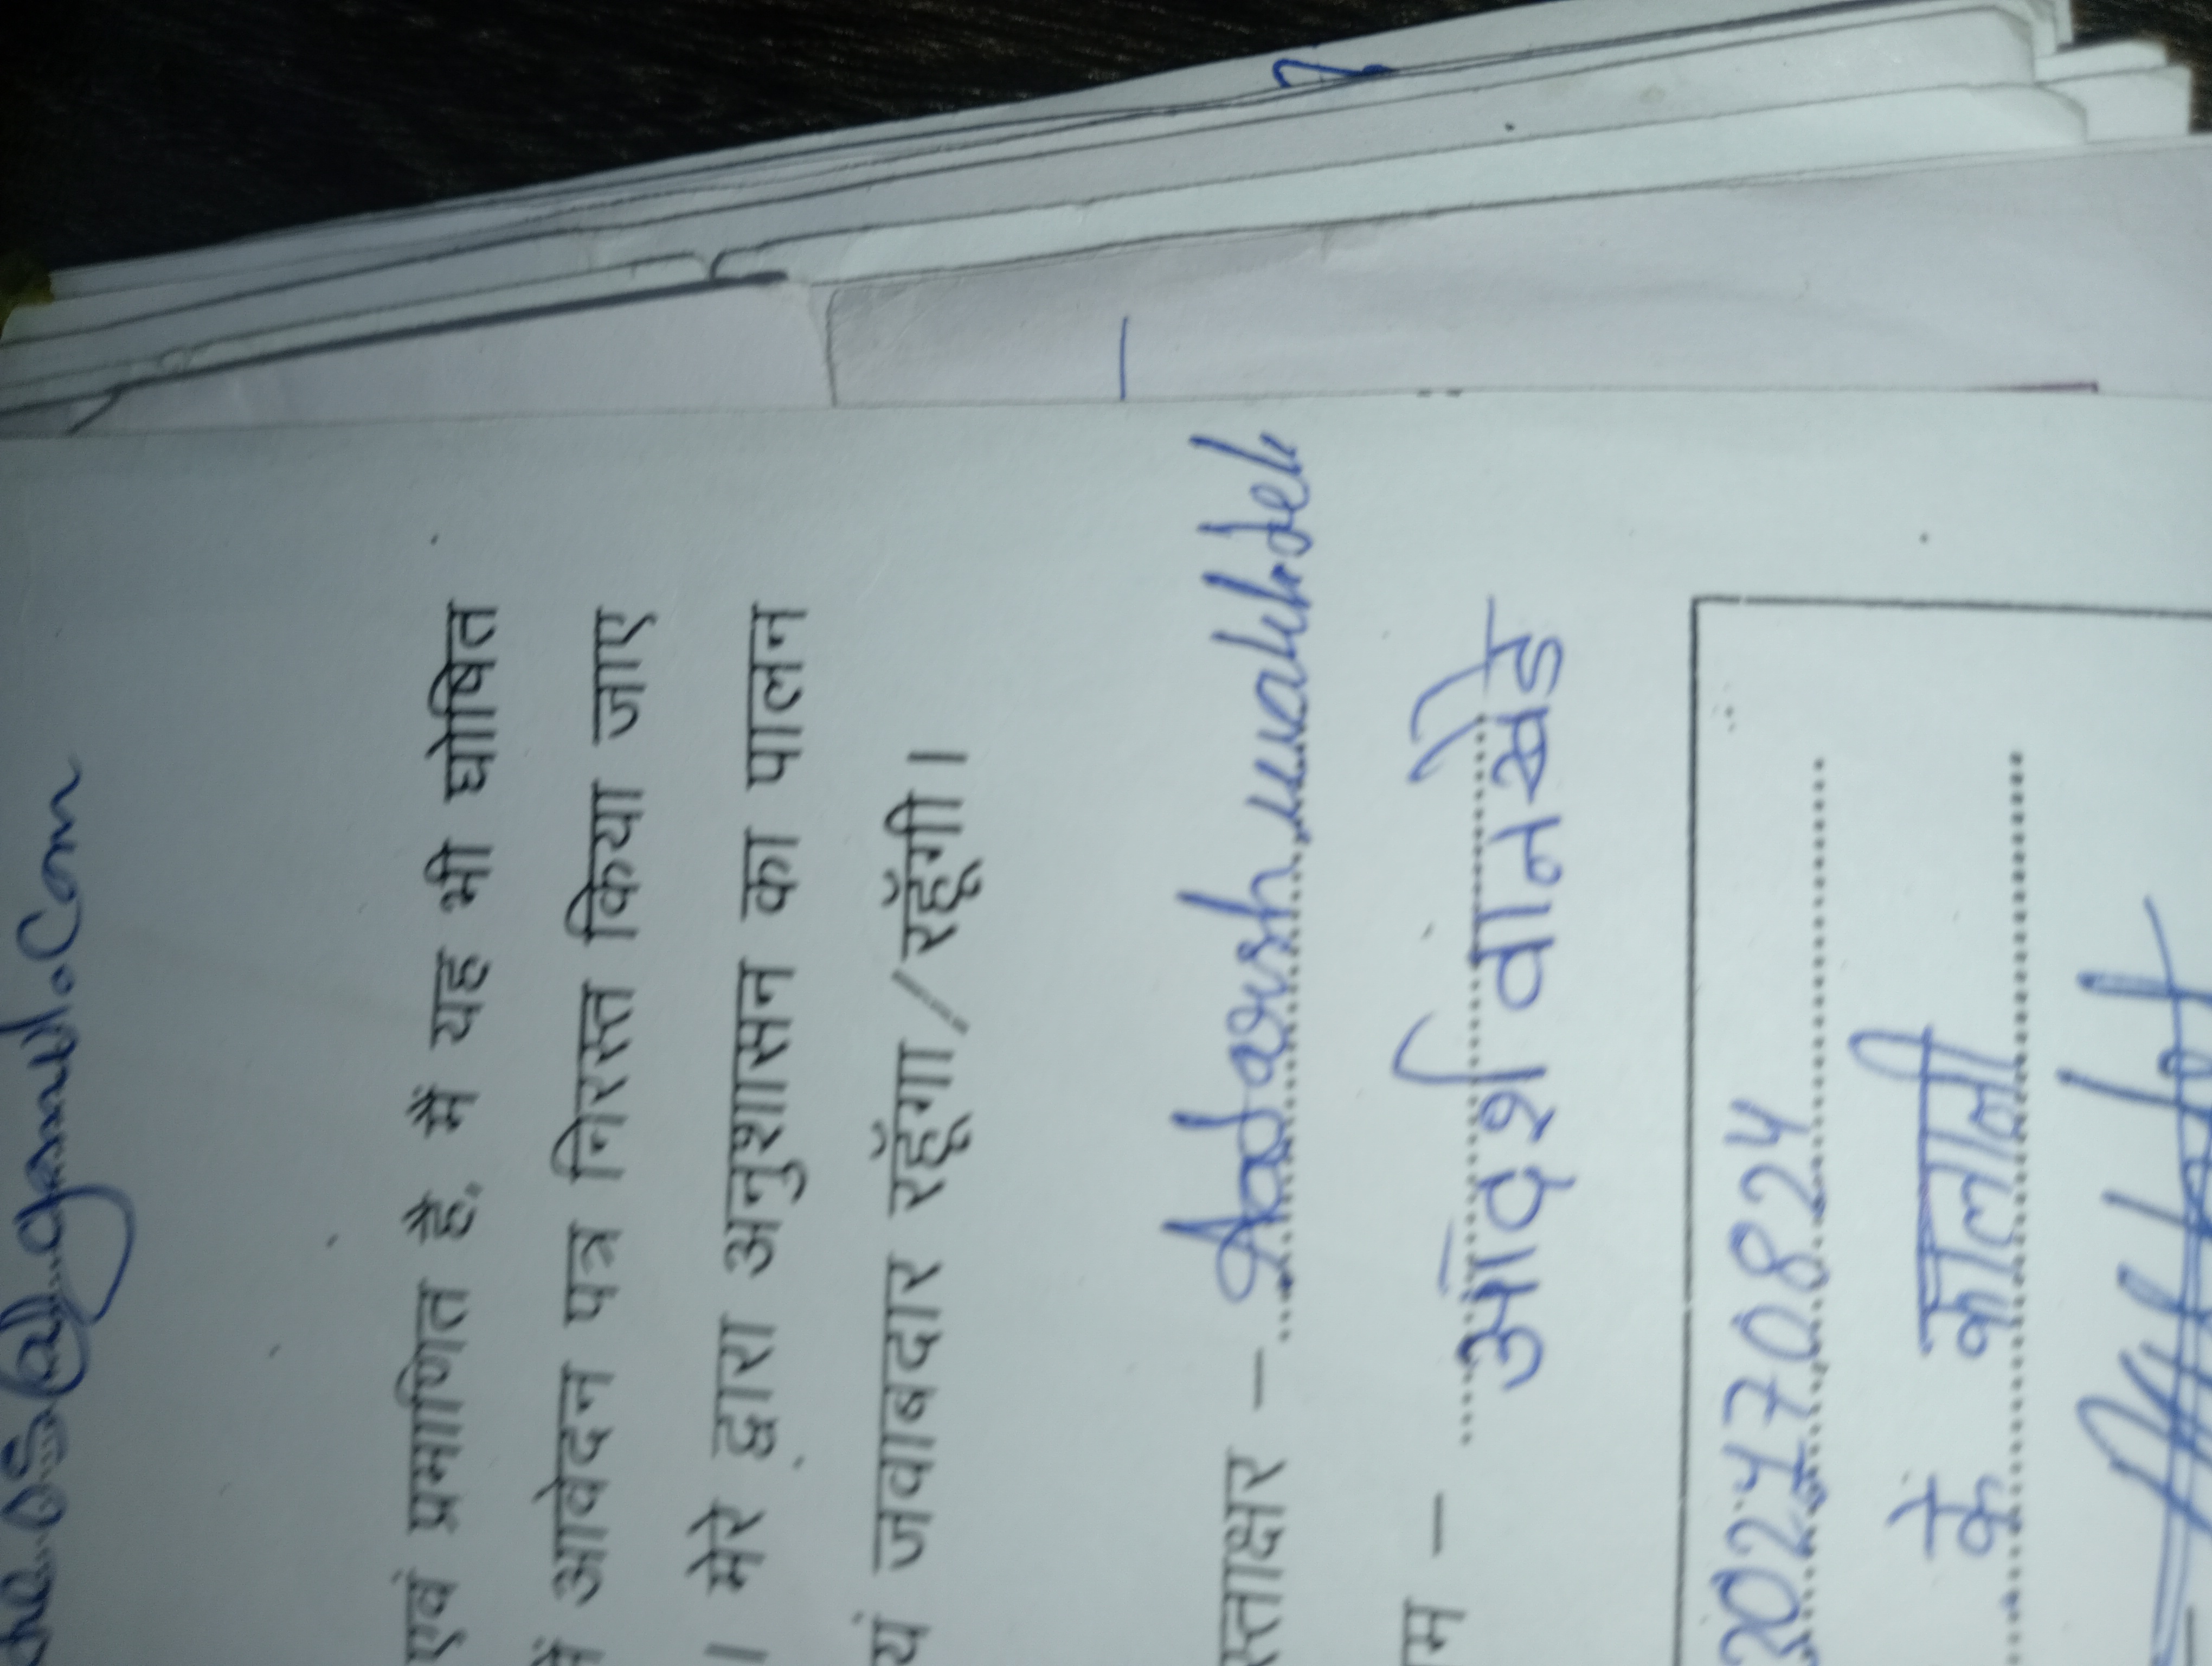 @gamil.com
एवं प्रमाणित है. मैं यह भी घोषित
में आवेदन पत्र निरस्त किया जाए
। मेरे द्वारा अनुशासन का पालन
यं जवाबदार रहूँगा/रहूँगी।
स्ताक्षर - Adarsh wankhde
म - आदर्श वानखेडे
302470824
के कॉलोनी